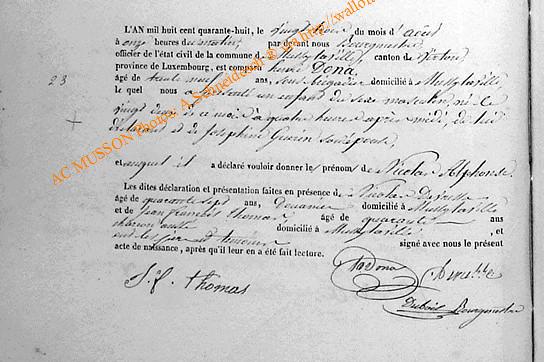 L'AN mil huit cent quarante-huit, le vingt trois du mois d'août
à onze heures du matin, par devant nous Bourgmestre
officier de l'état civil de la commune de Mussy la ville, canton de Virton
province de Luxembourg, est comparu Dona,
23
âgé de trente neuf ans, sous brigadier domicilié à Mussy la ville
le quel nous a présenté un enfant du sexe masculin, né le
vingt deux de ce mois à quatre heures après midi, de lui
déclarant et de Joséphine Guérin son épouse,
et auquel il a déclaré vouloir donner les prénoms de Nicolas Alphonse.
Les dites déclaration et présentation faites en présence de Nicolas
âgé de quarante sept ans, Douanier domicilié à Mussy la ville
et de Jean françois thomas âgé de quarante
ans domicilié à Mussy la ville, et
signé avec nous le présent
acte de naissance, après qu'il leur en a été fait lecture.
J. f. thomas
Dona
Dubois Bourgmestre
AC MUSSON Photos: A.Schneidesch @ http://wallo